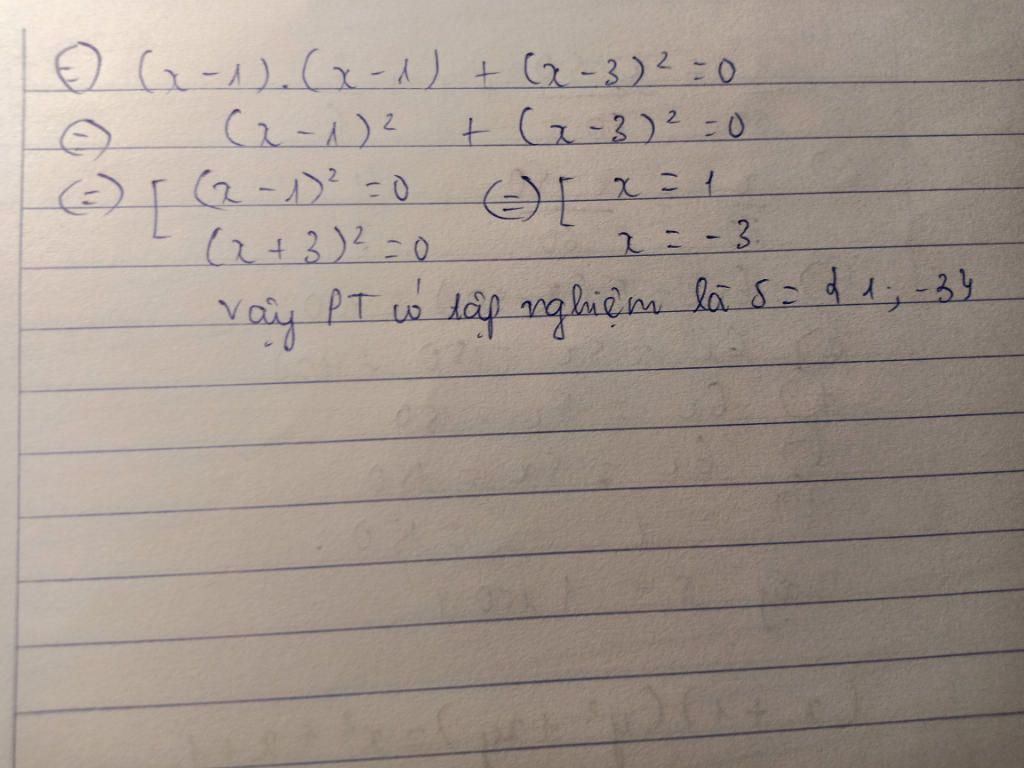 (=) (x - 1).(x - 1) + (x - 3)² = 0
(=) (x - 1)² + (x - 3)² = 0
(=) [ (x - 1)² = 0 (=) [ x = 1
(x + 3)² = 0 x = - 3
Vậy PT có tập nghiệm là S = { 1 ; -3}